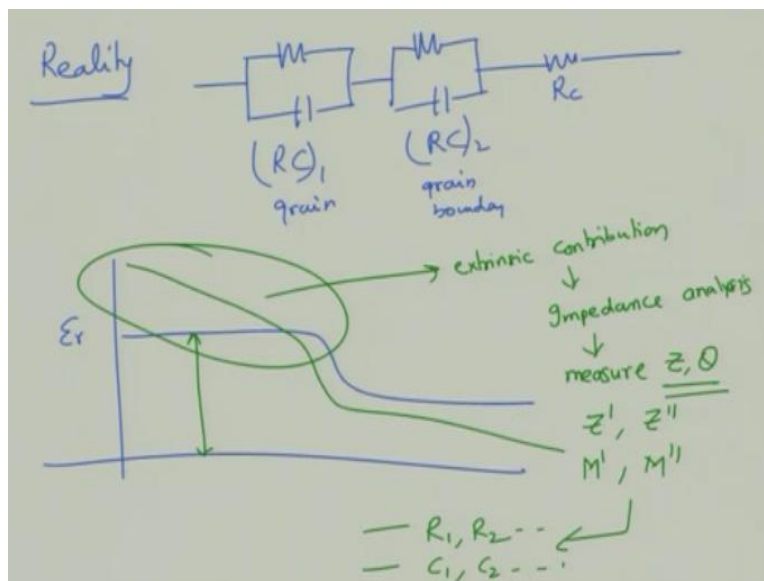 Reality
Rc
(RC)1
grain
(RC)2
grain
boundary
extrinsic contribution
Impedance analysis
measure Z, θ
Z', Z''
M', M''
εr
— R1, R2 - - -
— C1, C2 - - - -